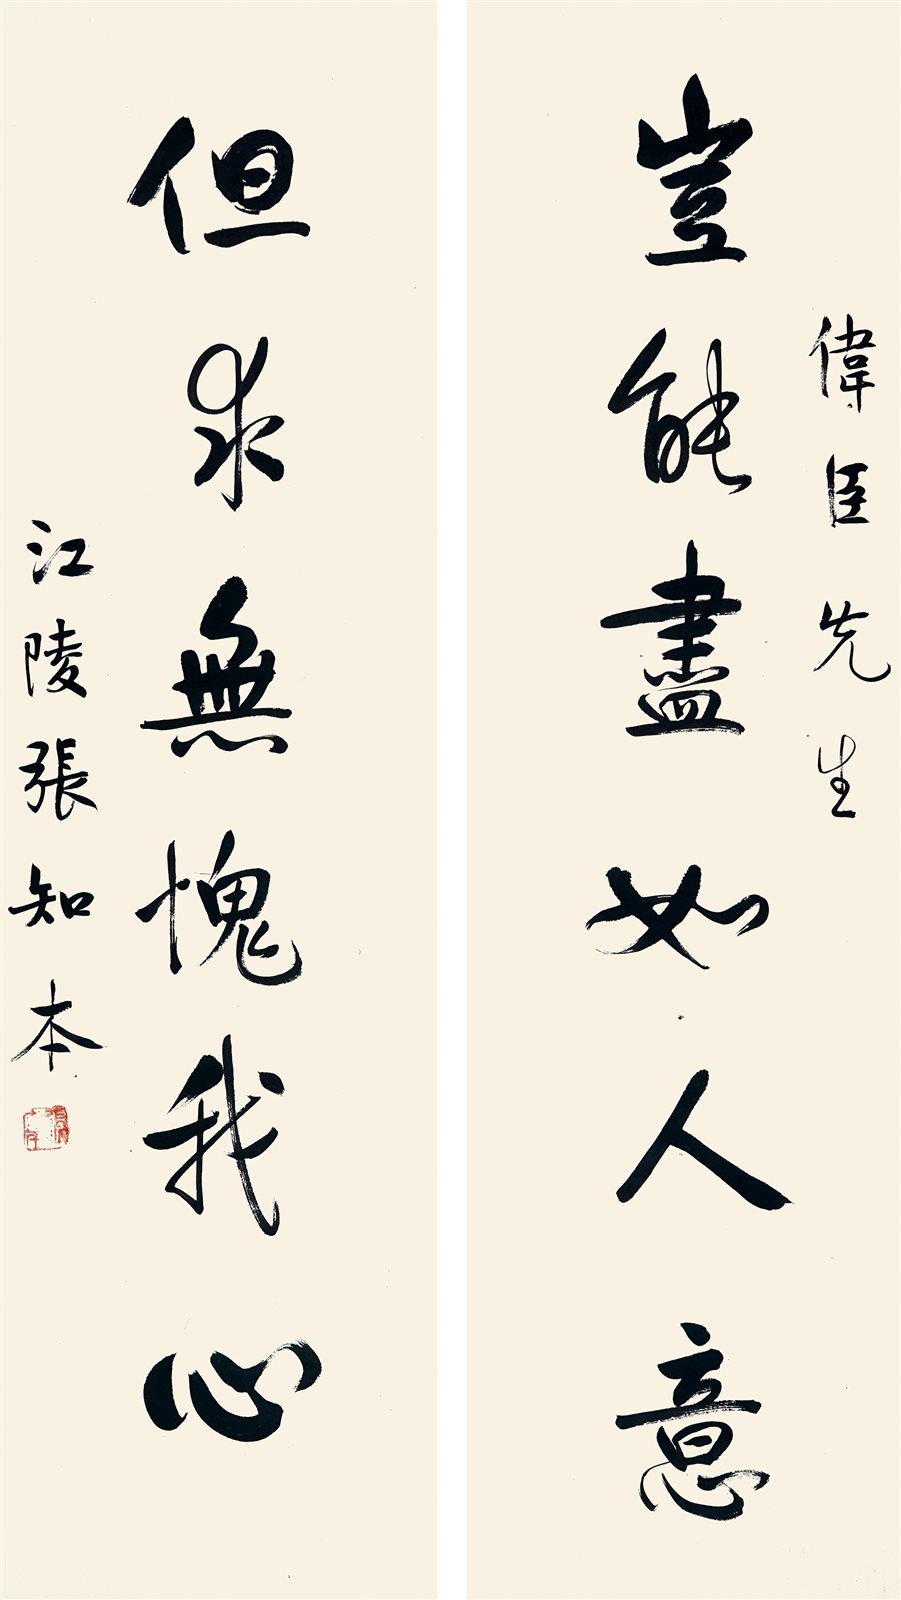 偉臣先生
豈能盡如人意
但求無愧我心
江陵張知本